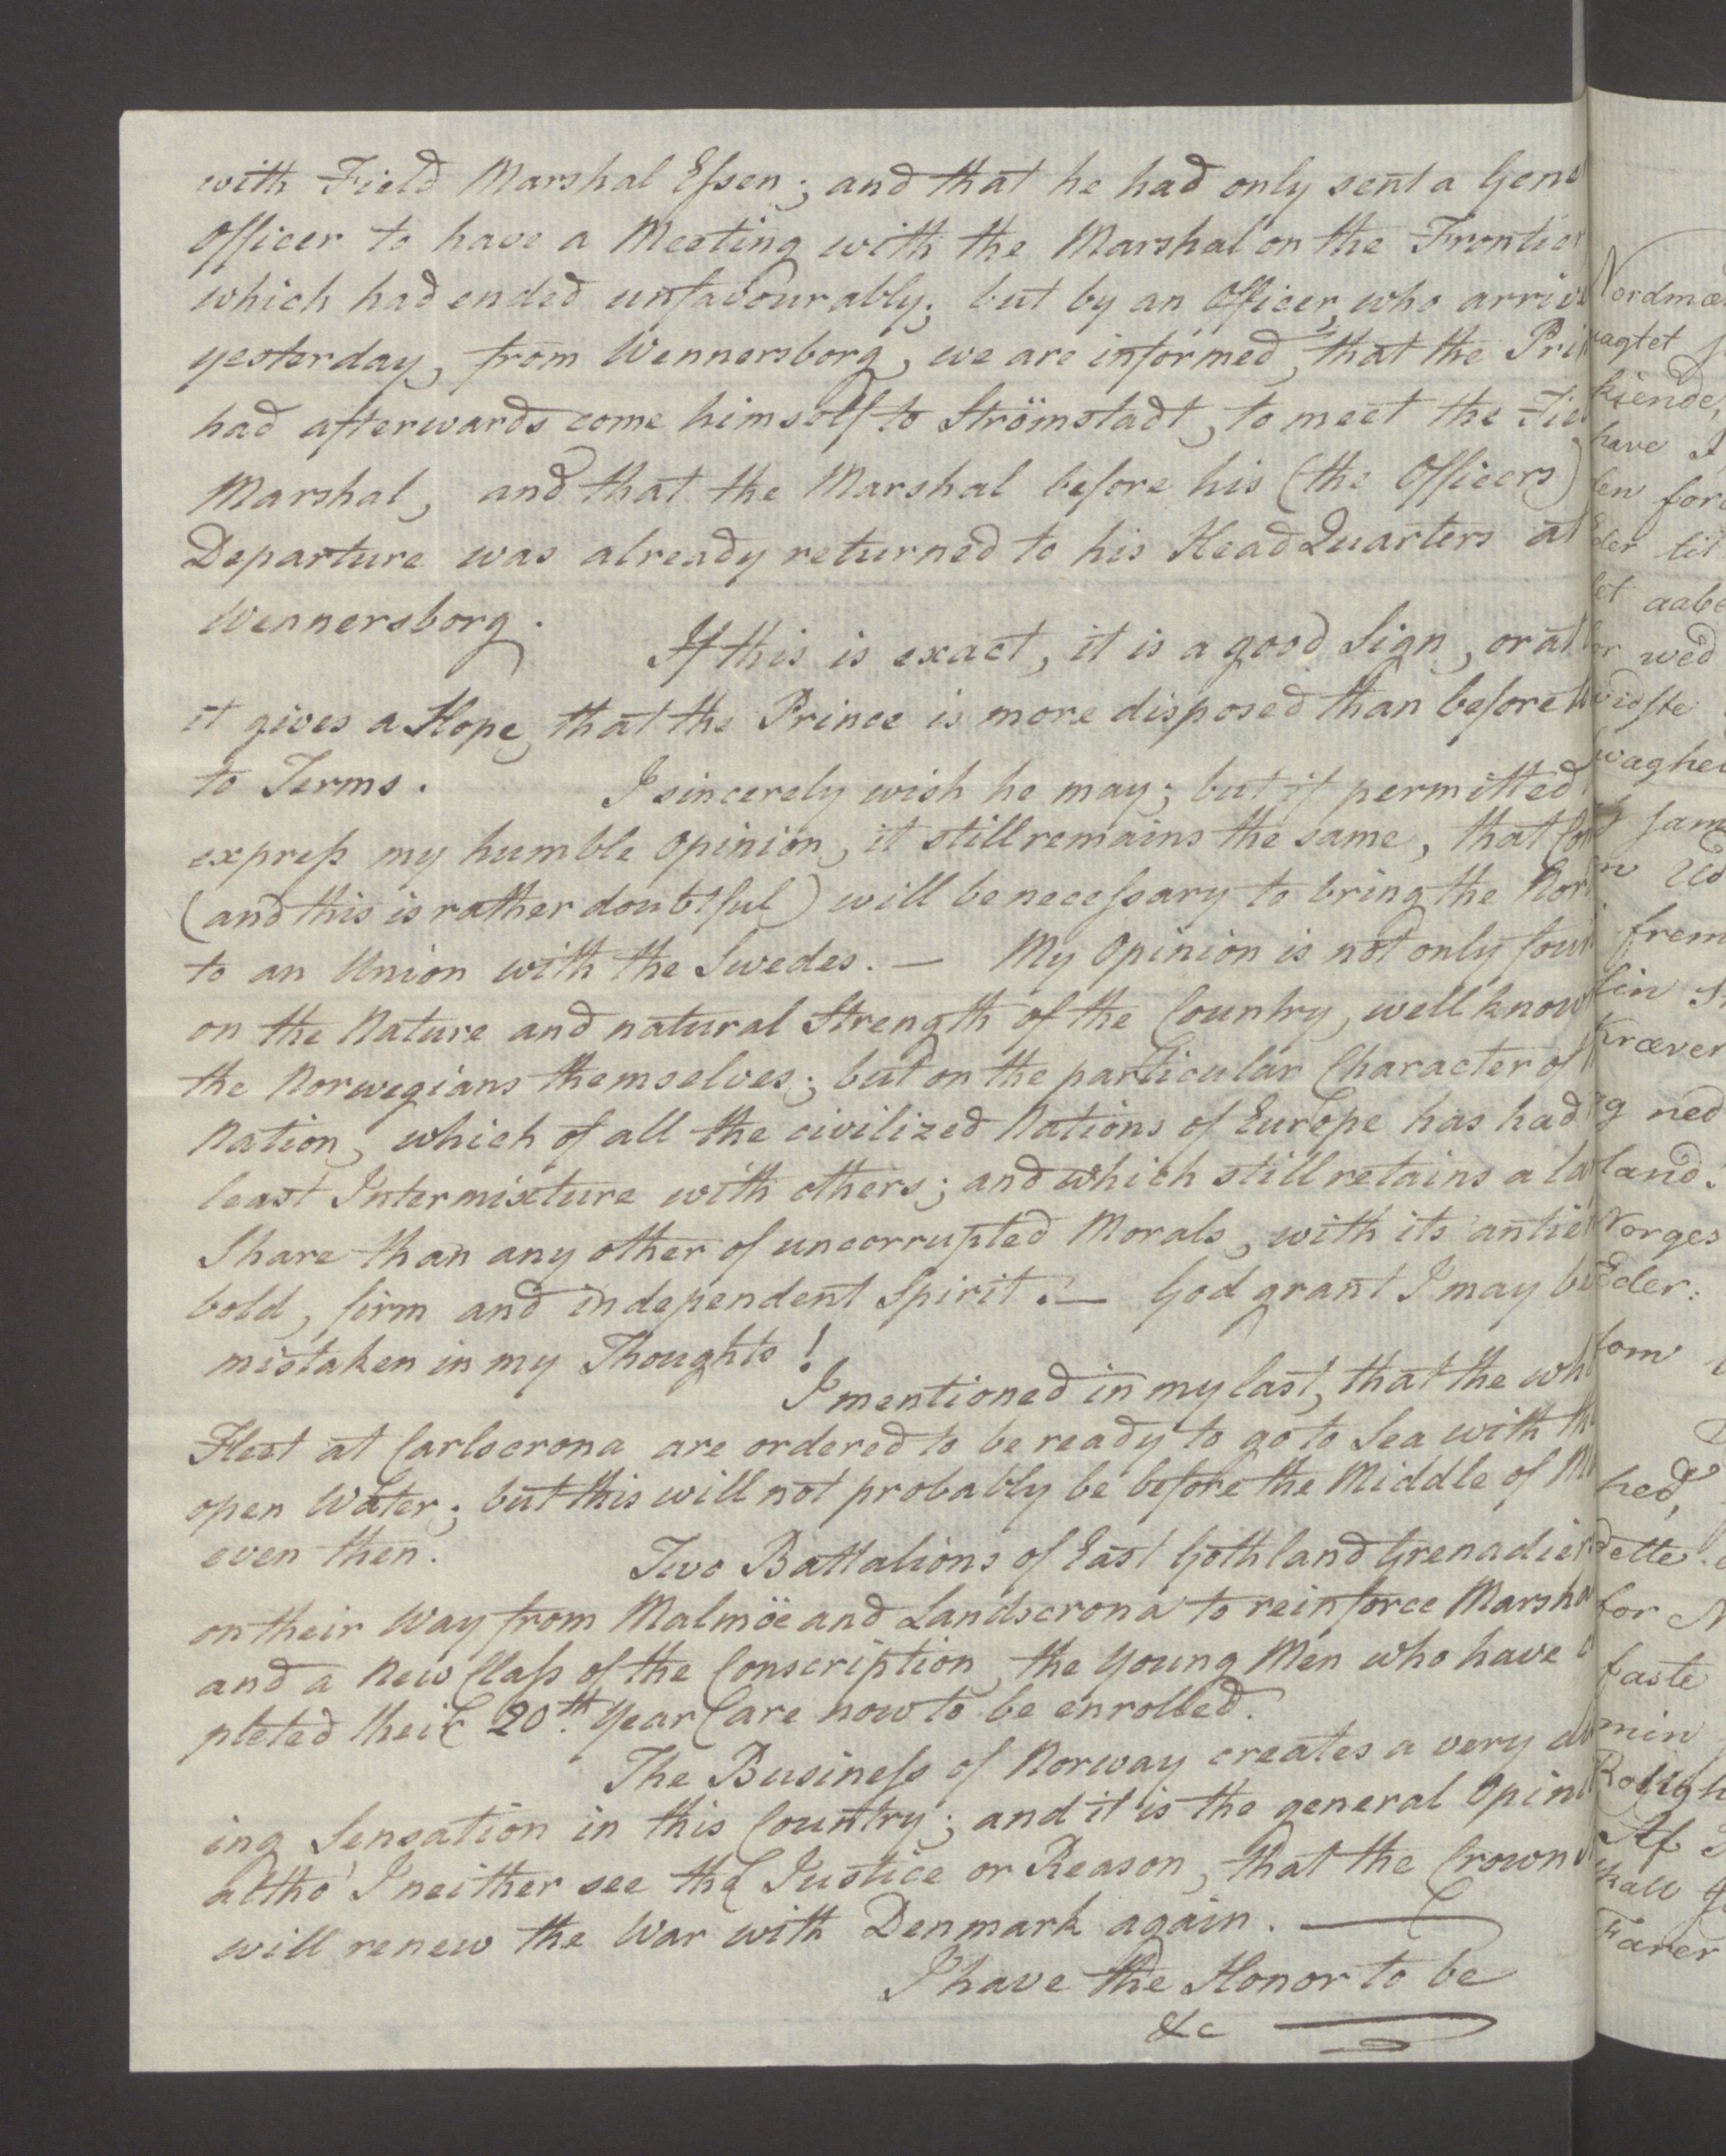 with Field Marshal Eſsen; and that he had only sent a Gene
Officer to have a Meeting with the Marshal on the Frontier
which had ended unfavourably; but by an Officer, who arrive
yesterday, from Wennersborg, we are informed, that the Prin
had afterwards come himself to Strömstadt, to meet the Fiel
Marshal, and that the Marshal before his (the Officers)
Departure was already returned to his Head Quarters at
Wennersborg.
If this is exact, it is a good Sign, or at
it gives a Hope, that the Prince is more disposed than before to
to Terms.
I sincerely wish he may; but if permitted
expreſs my humble Opinion, it still remains the same, that
(and this is rather doubtful) will be neceſsary to bring the Nor
to an Union with the Swedes. — My Opinion is not only foun
on the Nature and natural Strength of the Country, well know
the Norwegians themselves; but on the particular Character of
Nation, which of all the civilized Nations of Europe has had
least Intermixture with others; and which still retains a la
Share than any other of uncorrupted Morals, with its antie
bold, firm and independent Spirit. — God grant I may be
mistaken in my Thoughts!
I mentioned in my last, that the who
Fleet at Carlscrona are ordered to be ready to go to Sea with the
open Water; but this will not probably be before the Middle of M
even then.
Two Battalions of East Gothland Grenadier
on their Way from Malmöe and Landscrona to reinforce Marsha
and a New Claſs of the Conscription, the Young Men who have
pleted their 20th. Year are now to be enrolled.
The Busineſs of Norway creates a very
ing Sensation in this Country; and it is the general Opini
altho' I neither see the Justice or Reason, that the Crown
will renew the War with Denmark again. —
I have the Honor to be
&c
Nordmæ
agtet
kiende,
have
en for
der til
et aabe
or wed
vidste
waghe
sam
n Ud
frem
sin
kræver
g ned
land.
Norges
Eder.
som
hed,
dette
for N
faste
min
Roligh
Af
skall
Farer